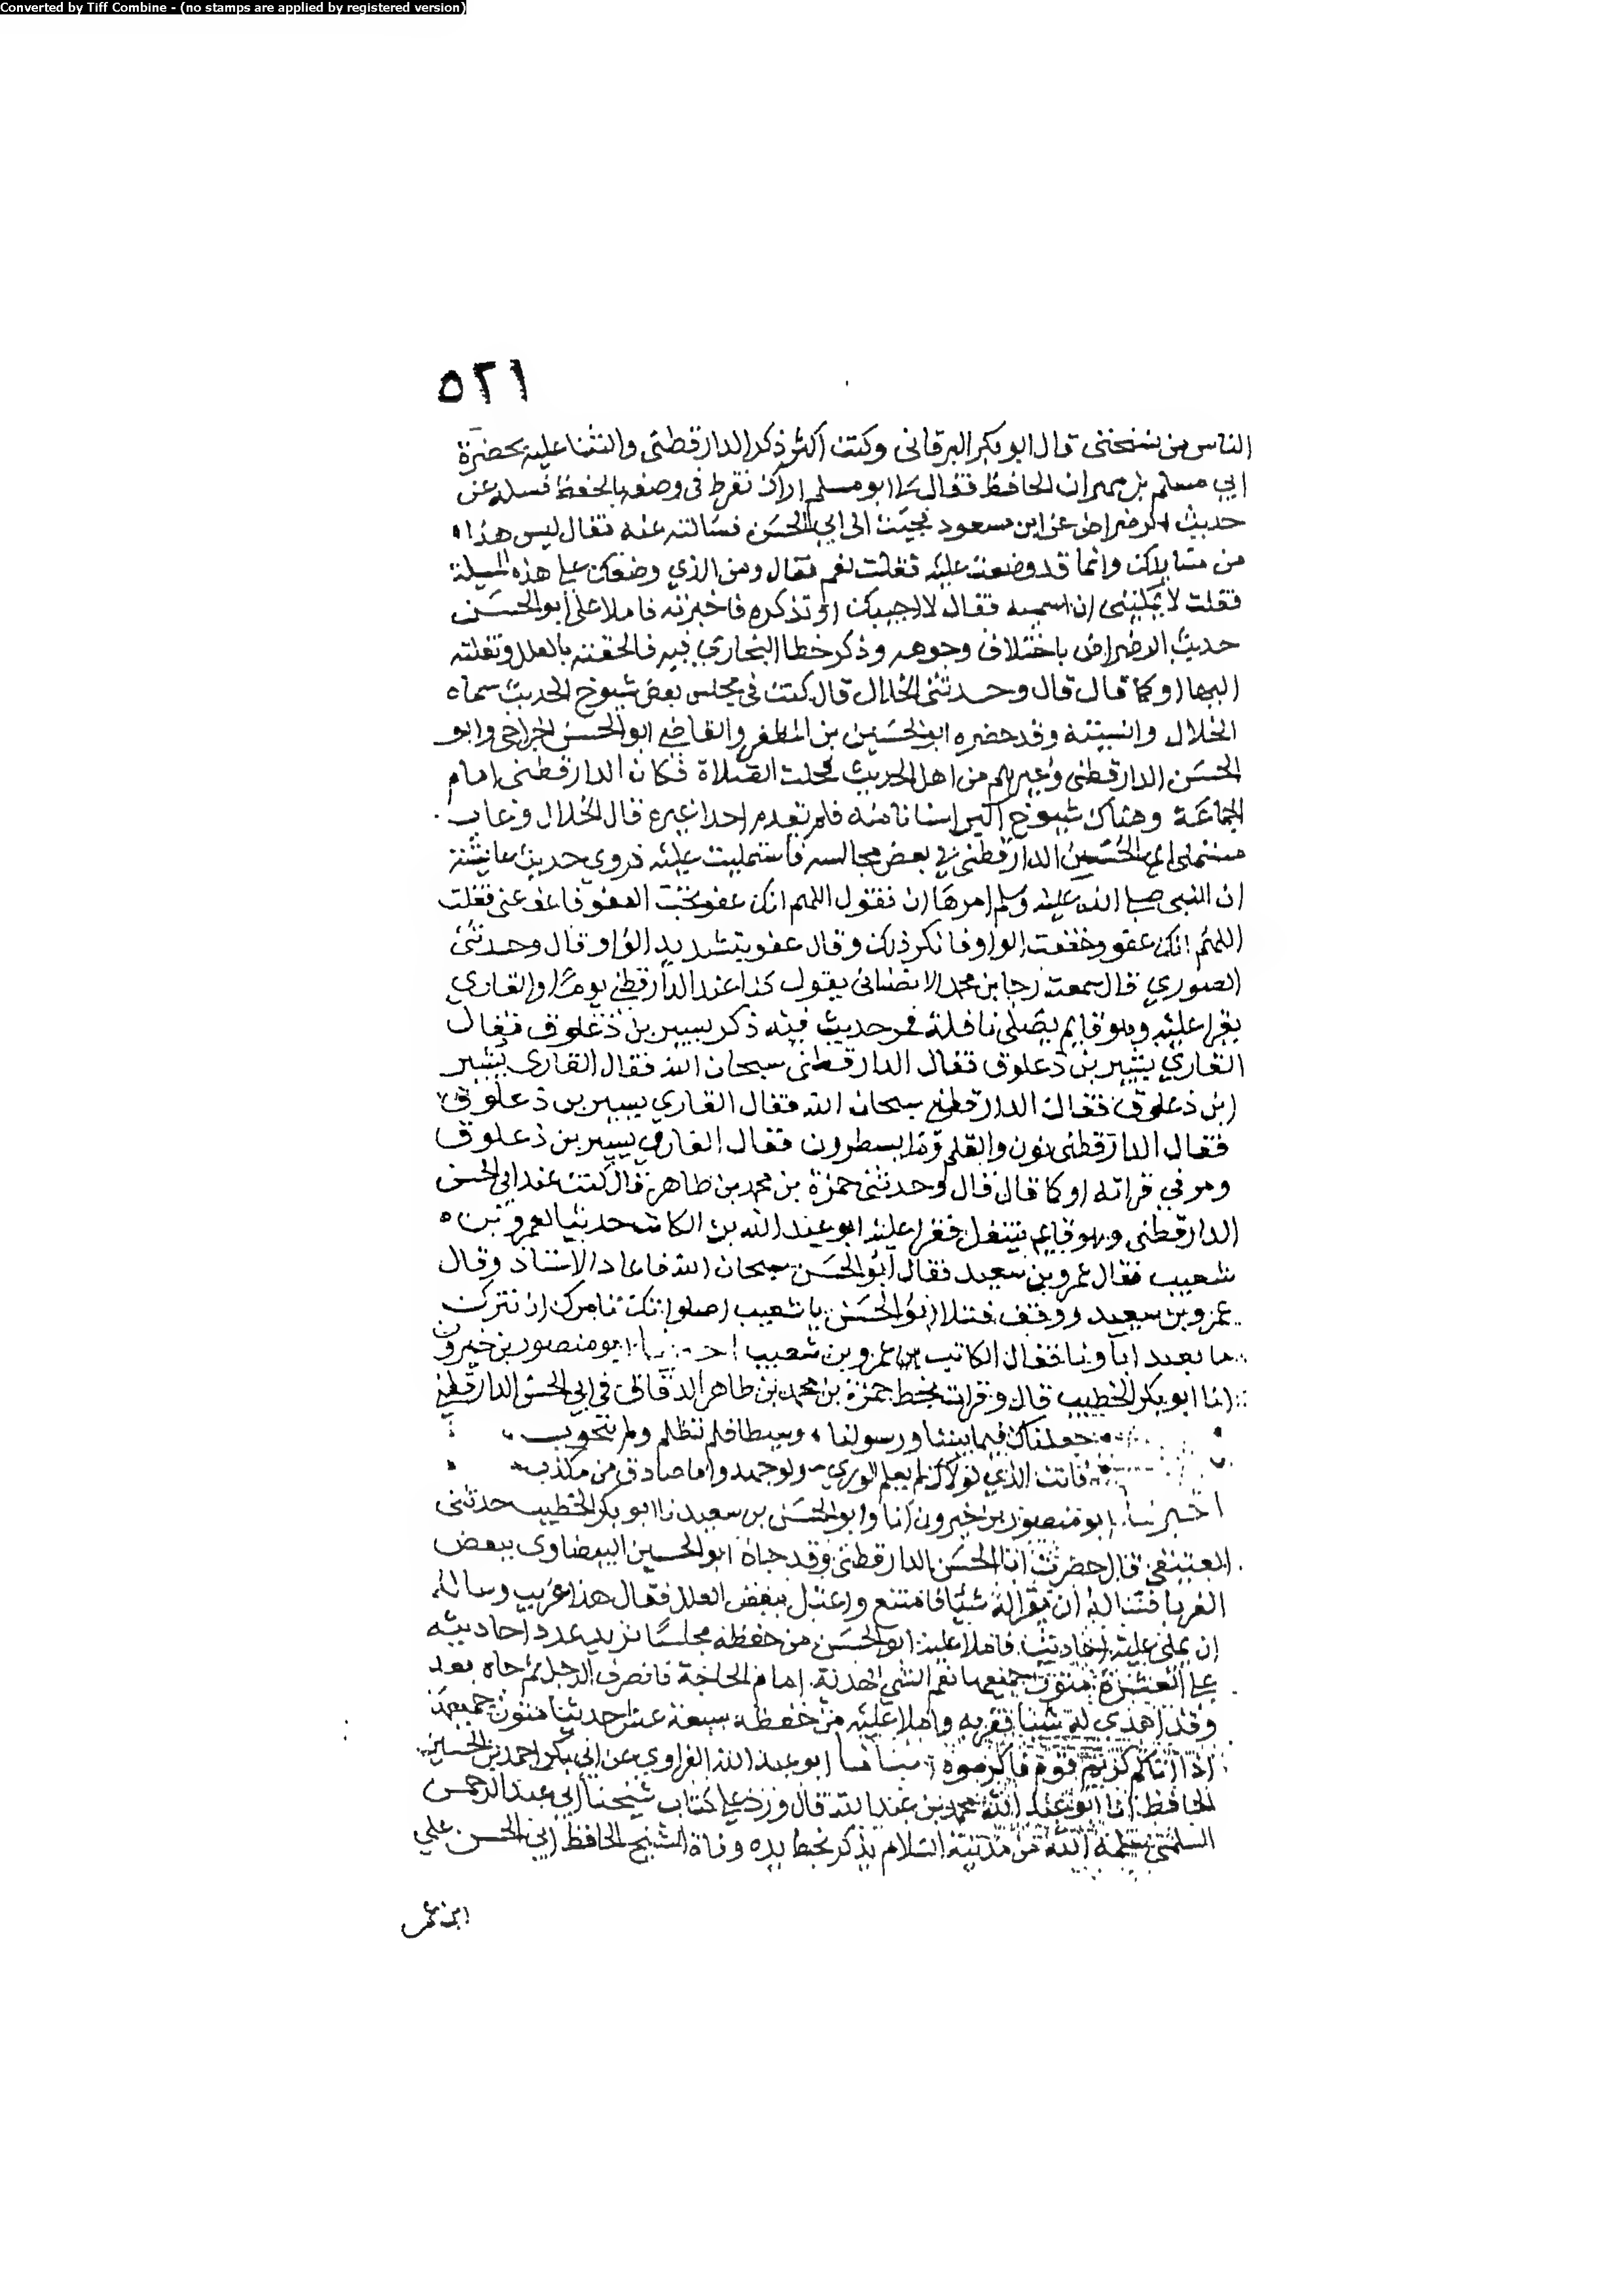 Converted by Tiff Combine - (no stamps are applied by registered version)
٥٢١
الناس من نسختى قال ابو بكر البرقانى وكنت اكثر ذكر الدارقطنى والثنا عليه بحضرة
ابي مسلم بن مهران الحافظ فقال لى ابو مسلم اراك تفرط فى وصفه بالحفظ فسله عن
حديث الرضراض عن ابن مسعود فجيت الى ابي الحسن فسالته عنه فقال ليس هذا
من مسايلك وانما قد وضعت عليه فقلت نعم فقال ومن الذي وضعك على هذه المسيلة
فقلت لا يمكننى ان اسميه فقال لا اجيبك او تذكره فاخبرته فاملا على ابو الحسن
حديث الرضراض باختلاف وجوهه وذكر خطا البخاري فيه فالحقته بالعلل ونقلته
اليها او كما قال قال وحدثنى الخلال قال كنت في مجلس بعض شيوخ الحديث سماه
الخلال وانسيته وقد حضره ابو الحسين بن المظفر والقاضي ابو الحسن الجراحى وابو
الحسن الدارقطنى وغيرهم من اهل الحديث فحلت الصلاة فكان الدارقطنى امام
الجماعة وهناك شيوخ اكبر اسنانا منه فلم يقدم احدا غيره قال الخلال وغاب
مستملى ابى الحسين الدارقطنى في بعض مجالسه فاستمليت عليه فروى حديث عايشة
ان النبى صلى الله عليه وسلم امرها ان تقول اللهم انك عفو تحب العفو فاعف عنى فقلت
اللهم انك عفو وخففت الواو فانكر ذلك وقال عفو بتشديد الواو قال وحدثنى
الصوري قال سمعت رجا بن محمد الانصنائى يقول كنا عند الدارقطنى يوما والقاري
يقرا عليه وهو قايم يصلى نافلة فمر حديث فيه ذكر نسير بن ذعلوق فقال
القاري بشير بن ذعلوق فقال الدارقطنى سبحان الله فقال القارى بشير
ابن ذعلوق فقال الدارقطنى سبحان الله فقال القاري يسير بن ذعلوق
فقال الدارقطنى نون والقلم وما يسطرون فقال القاري نسير بن ذعلوق
ومر في قراته او كما قال قال وحدثنى حمزة بن محمد بن طاهر قال كنت عند ابى الحسن
الدارقطنى وهو قايم يتنفل فقرا عليه ابو عبد الله بن الكاتب حديثا لعمرو بن
شعيب فقال عمرو بن سعيد فقال ابو الحسن سبحان الله فاعاد الاسناد وقال
عمرو بن سعيد ووقف فتلا ابو الحسن يا شعيب اصلواتك تامرك ان نترك
ما يعبد اباونا فقال الكاتب عمرو بن شعيب ابو منصور بن خيرون
انا ابو بكر الخطيب قال وقرات بخط حمزة بن محمد بن طاهر الدقاق في ابى الحسن الدارقطنى
جعلناك فيما بيننا ورسولنا وسيطا فلم تظلم ولم تتحوب
فانت الذي لولاك لم يعلم الورى ولو جهدوا ما صادق من مكذب
اخبرنا ابو منصور بن خيرون انا وابو الحسن بن سعيد نا ابو بكر الخطيب حدثنى
العتيقى قال حضرت ابا الحسن الدارقطنى وقد جاه ابو الحسين البيضاوى ببعض
الغربا فساله ان يقرا له شيا فامتنع واعتل ببعض العلل فقال هذا غريب وساله
ان يملى عليه احاديث فاملا عليه ابو الحسن من حفظه مجلسا تزيد عدد احاديثه
على العشرة متون جميعها نعم الشي الهدية امام الحاجة فانصرف الرجل ثم جاه بعد
وقد اهدى له شيا فقربه واملا عليه من حفظه سبعة عشر حديثا متون جميعها
اذا اتاكم كريم قوم فاكرموه ابو عبد الله الفراوي عن ابى بكر احمد بن الحسين
الحافظ انا ابو عبد الله محمد بن عبد الله قال ورد على كتاب شيخنا ابى عبد الرحمن
السلمى من مدينة السلام يذكر بخط يده وفاة الشيخ الحافظ ابى الحسن على
ابن عمر